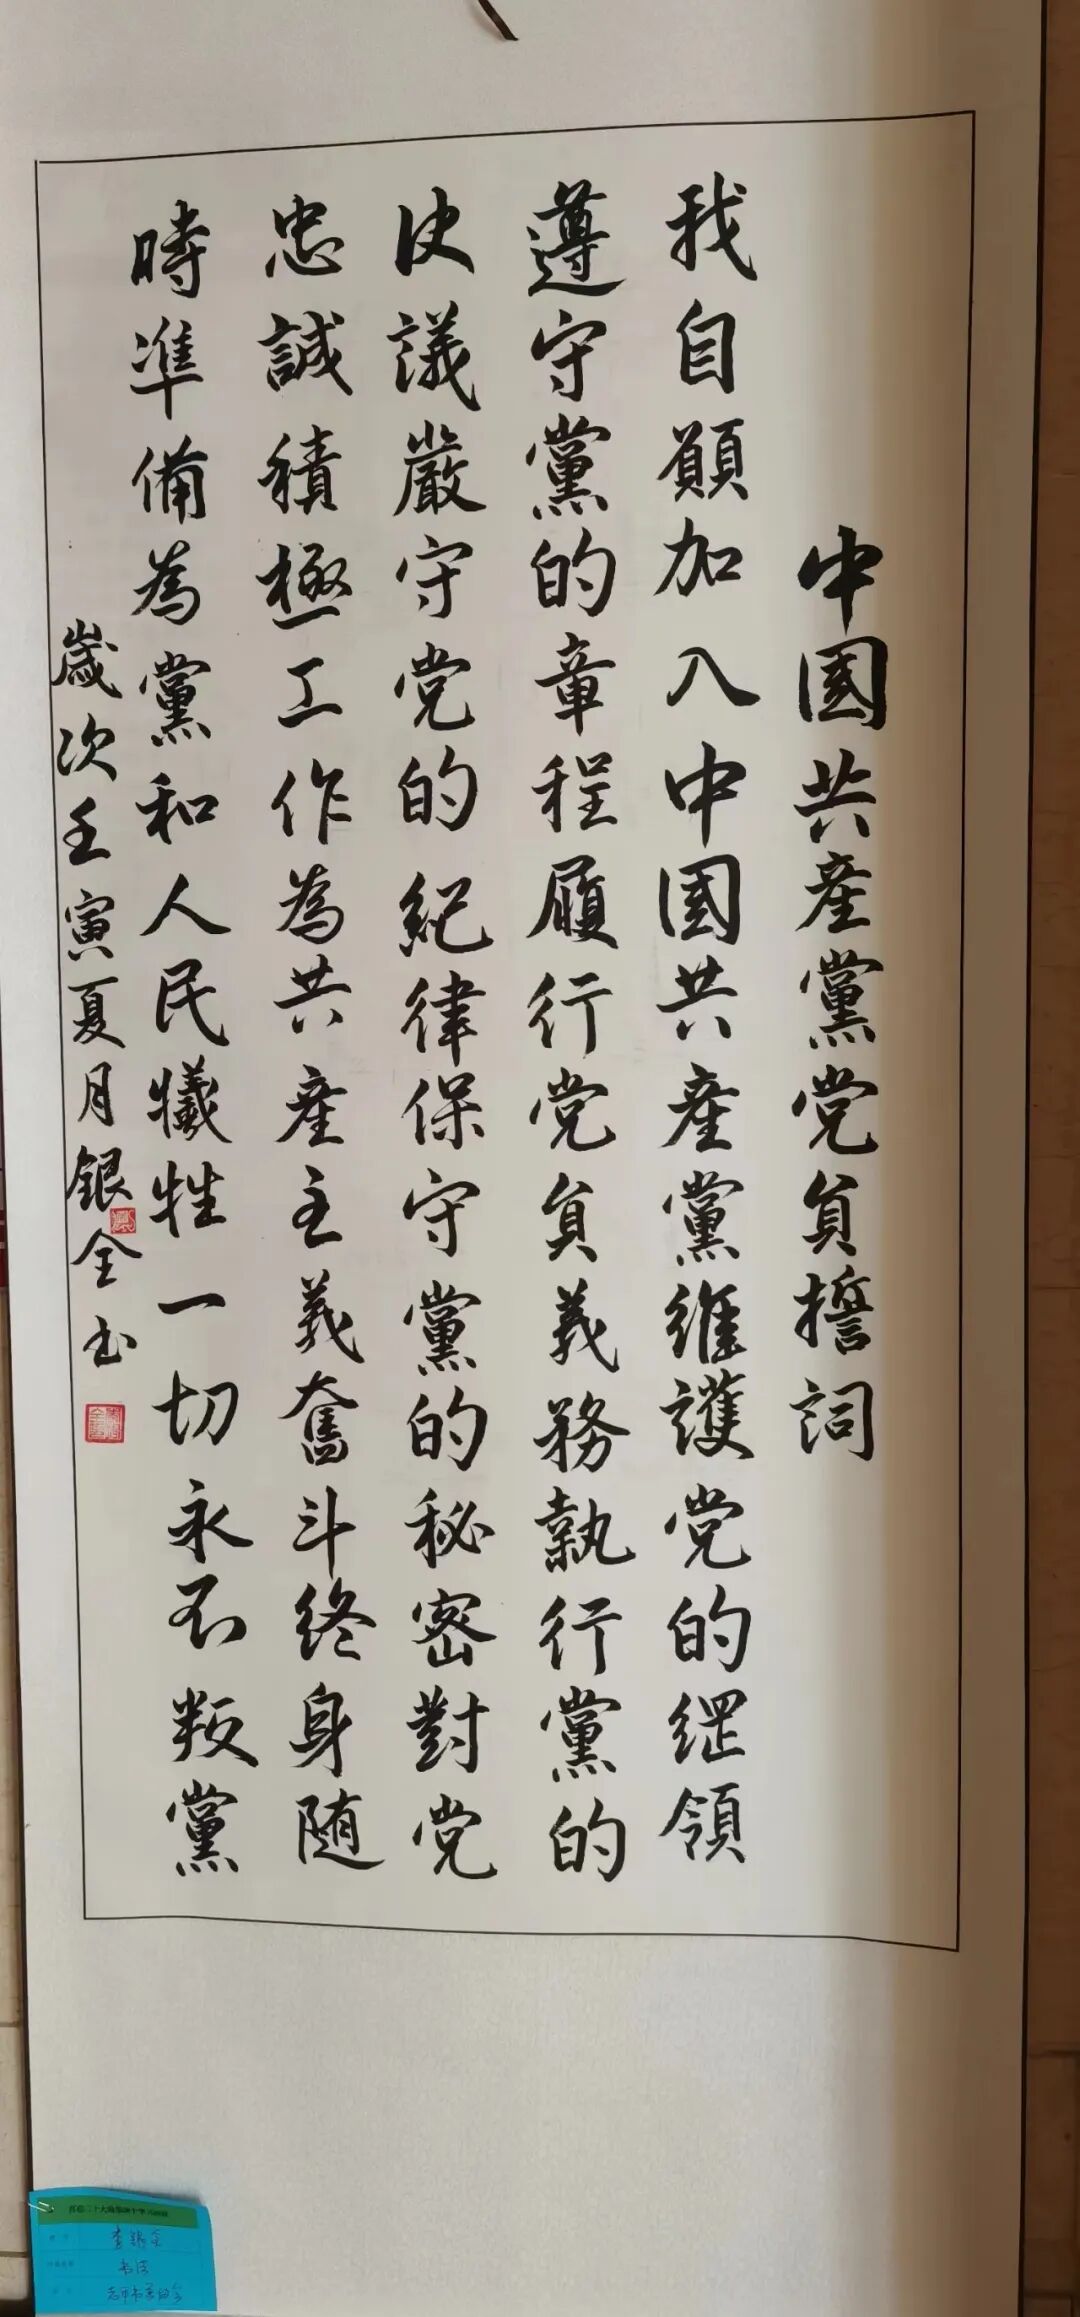 中国共産黨党員誓詞
我自願加入中国共産黨維護党的綱領
遵守黨的章程履行党員義務執行黨的
决議嚴守党的紀律保守黨的秘密對党
忠誠積極工作為共産主義奮斗终身随
時準備為黨和人民犠牲一切永不叛黨
歲次壬寅夏月银全书
书法